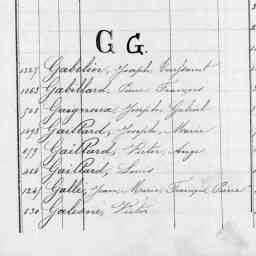 G G.
1327 Gabelier, Joseph Toussaint
1063 Gabillard, Pierre François
502 Gasgneux, Joseph Gabriel
1298 Gaillard, Joseph Marie
879 Gaillard, Victor Ange
466 Gaillard, Louis
1247 Galle, Jean Marie François Pierre
830 Galesne, Victor